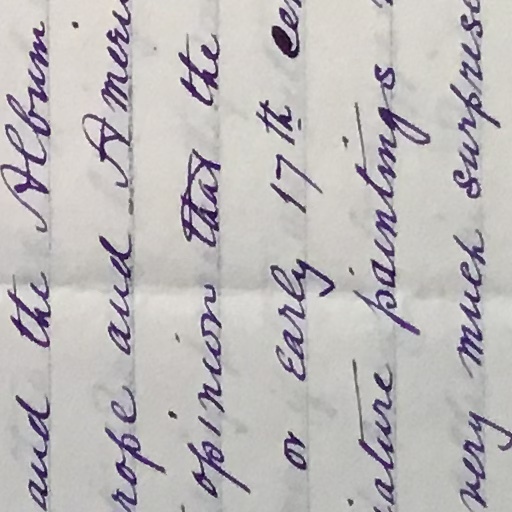 and the Album
rope and Ameri
opinion that the
or early 17th cen
iature paintings
very much surprise